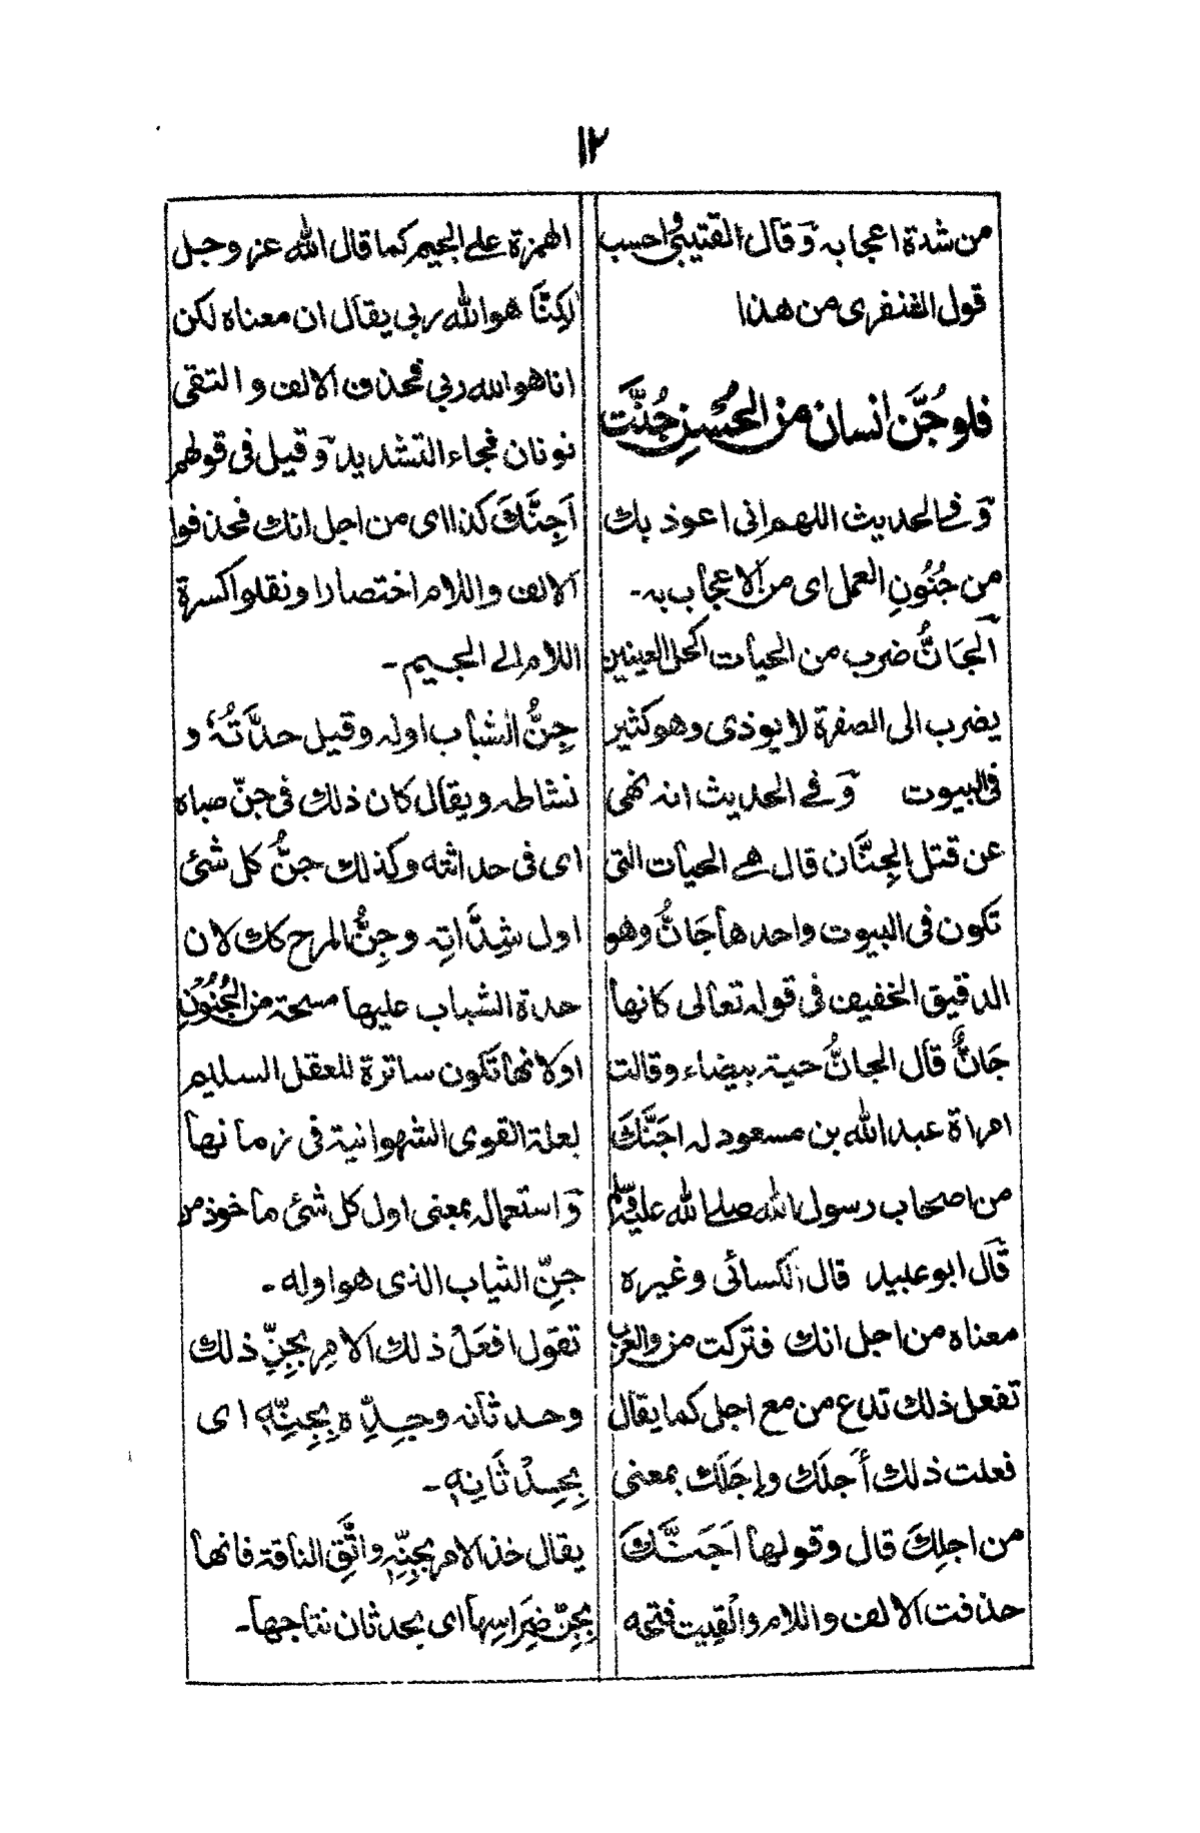 ١٢
من شدة اعجابه وقال القتيبي واحسب
قول الشنفرى من هذا
فلو جُنَّ انسان من الحُسنِ جُنَّت
وفي الحديث اللهم انى اعوذ بك
من جُنُونِ العمل اى من الاعجاب به۔
اَلجَانُّ ضرب من الحيات اكحل العينين
يضرب الى الصفرة لا يوذى وهو كثير
فى البيوت وفي الحديث انه نهى
عن قتل الجِنَّان قال هي الحيات التى
تكون فى البيوت واحدها جَانٌّ وهو
الدقيق الخفيف فى قوله تعالى كانها
جَانٌّ قال الجانُّ حية بيضاء وقالت
امراة عبد الله بن مسعود له اجَنَّكَ
من اصحاب رسول الله صلى الله عليه وسلم
قال ابو عبيد قال الكسائى وغيره
معناه من اجل انك فتركت من والعرب
تفعل ذلك تدع من مع اجل كما يقال
فعلت ذلك أَجلَك وإِجَلَك بمعنى
من اجلِكَ قال وقولها اَجَنَّكَ
حذفت الالف واللام والْقِيت فتحه
الهمزة على الجيم كما قال الله عز وجل
لٰكِنَّا هو الله ربي يقال ان معناه لكن
انا هو الله ربي فحذف الالف والتقى
نونان فجاء التشديد وقيل فى قولهم
اَجِنَّكَ كذا اى من اجل انك فحذفوا
الالف واللام اختصارا ونقلوا كسرة
اللام الى الجيم۔
جِنُّ الشباب اوله وقيل حدَّتُهٗ و
نشاطه ويقال كان ذلك فى جنّ صباه
اى فى حداثته وكذلك جنُّ كل شئ
اول شِدَّاتِه وجِنُّ المرح كك لان
حدة الشباب عليها مسحة من الجُنُوْنِ
اولانها تَكون ساترة للعقل السليم
لعلة القوى الشهوانية فى زمانها
واستعماله بمعنى اول كل شئ ماخوذ من
جنِّ الشياب الذى هو اوله۔
تقول افعَلْ ذلك الامر بجِنِّ ذلك
وحدثانه وجِدِّه بِجِنِّهٖ اى
بِحِدْثَانِهٖ۔
يقال خذ الامر بجِنِّهٖ واتَّقِ الناقة فانها
بِجِنِّ ضِرَاسِها اى بحدثان نتاجها۔